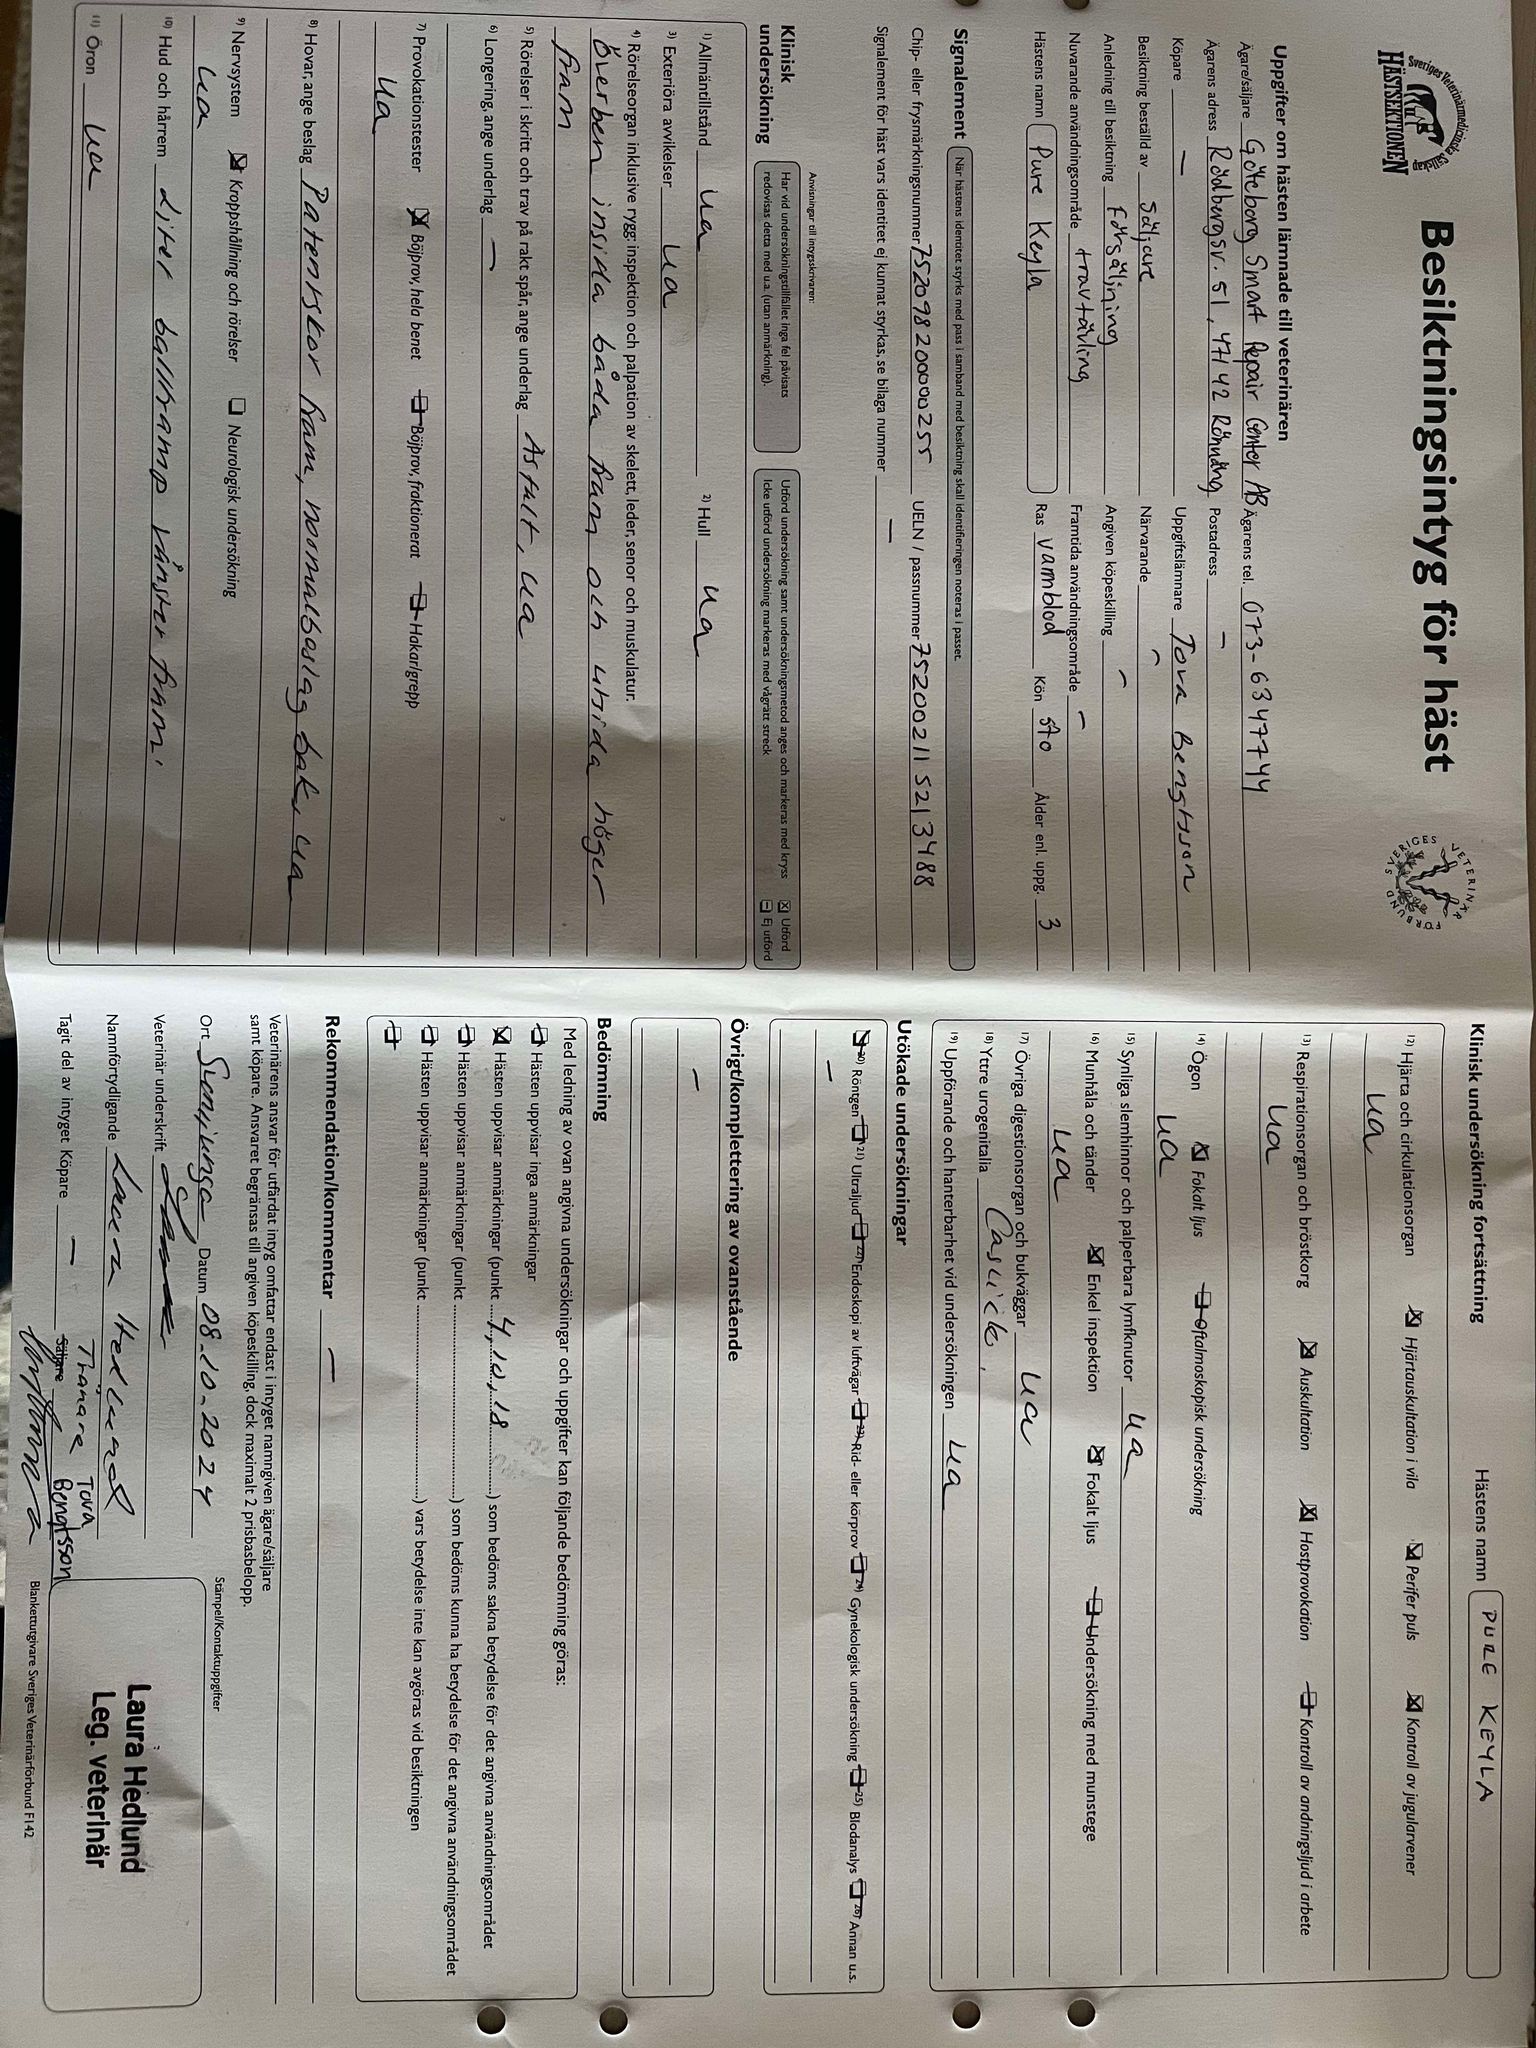 Sveriges Veterinärmedicinska Sällskap
HÄSTSEKTIONEN
Besiktningsintyg för häst
SVERIGES VETERINÄRFÖRBUND
Uppgifter om hästen lämnade till veterinären
Ägare/säljare Göteborg Smart Repair Center AB Ägarens tel. 073-6347744
Ägarens adress Rödbergsv. 51, 47142 Rönnäng Postadress –
Köpare – Uppgiftslämnare Tova Bengtsson
Besiktning beställd av Säljare Närvarande –
Anledning till besiktning Försäljning Angiven köpeskilling –
Nuvarande användningsområde travtävling Framtida användningsområde –
Hästens namn Pure Keyla Ras varmblod Kön sto Ålder enl. uppg. 3
Signalement När hästens identitet styrks med pass i samband med besiktning skall identifieringen noteras i passet.
Chip- eller frysmärkningsnummer 752098200000255 UELN / passnummer 752002115213488
Signalement för häst vars identitet ej kunnat styrkas, se bilaga nummer –
Klinisk undersökning
Anvisningar till intygsskrivaren:
Har vid undersökningstillfället inga fel påvisats
redovisas detta med u.a. (utan anmärkning).
Utförd undersökning samt undersökningsmetod anges och markeras med kryss Utförd
Icke utförd undersökning markeras med vågrätt streck Ej utförd
1) Allmäntillstånd ua 2) Hull ua
3) Exteriöra avvikelser ua
4) Rörelseorgan inklusive rygg: inspektion och palpation av skelett, leder, senor och muskulatur.
Överben insida båda fram och utsida höger
fram
5) Rörelser i skritt och trav på rakt spår, ange underlag Asfalt, ua
6) Longering, ange underlag –
7) Provokationstester Böjprov, hela benet Böjprov, fraktionerat Hakar/grepp
ua
8) Hovar, ange beslag Patenskor fram, normalbeslag bak, ua
9) Nervsystem Kroppshållning och rörelser Neurologisk undersökning
ua
10) Hud och hårrem Liter balltramp vänster fram.
11) Öron ua
Klinisk undersökning fortsättning Hästens namn PURE KEYLA
12) Hjärta och cirkulationsorgan Hjärtauskultation i vila Perifer puls Kontroll av jugularvener
ua
13) Respirationsorgan och bröstkorg Auskultation Hostprovokation Kontroll av andningsljud i arbete
ua
14) Ögon Fokalt ljus Oftalmoskopisk undersökning
ua
15) Synliga slemhinnor och palperbara lymfknutor ua
16) Munhåla och tänder Enkel inspektion Fokalt ljus Undersökning med munstege
ua
17) Övriga digestionsorgan och bukväggar ua
18) Yttre urogenitalia
19) Uppförande och hanterbarhet vid undersökningen ua
Utökade undersökningar
20) Röntgen 21) Ultraljud 22) Endoskopi av luftvägar 23) Rid- eller körprov 24) Gynekologisk undersökning 25) Blodanalys 26) Annan u.s.
–
Övrigt/komplettering av ovanstående
–
Bedömning
Med ledning av ovan angivna undersökningar och uppgifter kan följande bedömning göras:
Hästen uppvisar inga anmärkningar
Hästen uppvisar anmärkningar (punkt 4, 10, 18) som bedöms sakna betydelse för det angivna användningsområdet
Hästen uppvisar anmärkningar (punkt ) som bedöms kunna ha betydelse för det angivna användningsområdet
Hästen uppvisar anmärkningar (punkt ) vars betydelse inte kan avgöras vid besiktningen
Rekommendation/kommentar –
Veterinärens ansvar för utfärdat intyg omfattar endast i intyget namngiven ägare/säljare
samt köpare. Ansvaret begränsas till angiven köpeskilling, dock maximalt 2 prisbasbelopp.
Ort Datum 08.10.2024
Veterinär underskrift
Namnförtydligande Laura Hedlund
Tagit del av intyget Köpare – Säljare
Tränare Tova Bengtsson
Stämpel/Kontaktuppgifter
Laura Hedlund
Leg. veterinär
Blankettutgivare Sveriges Veterinärförbund F142